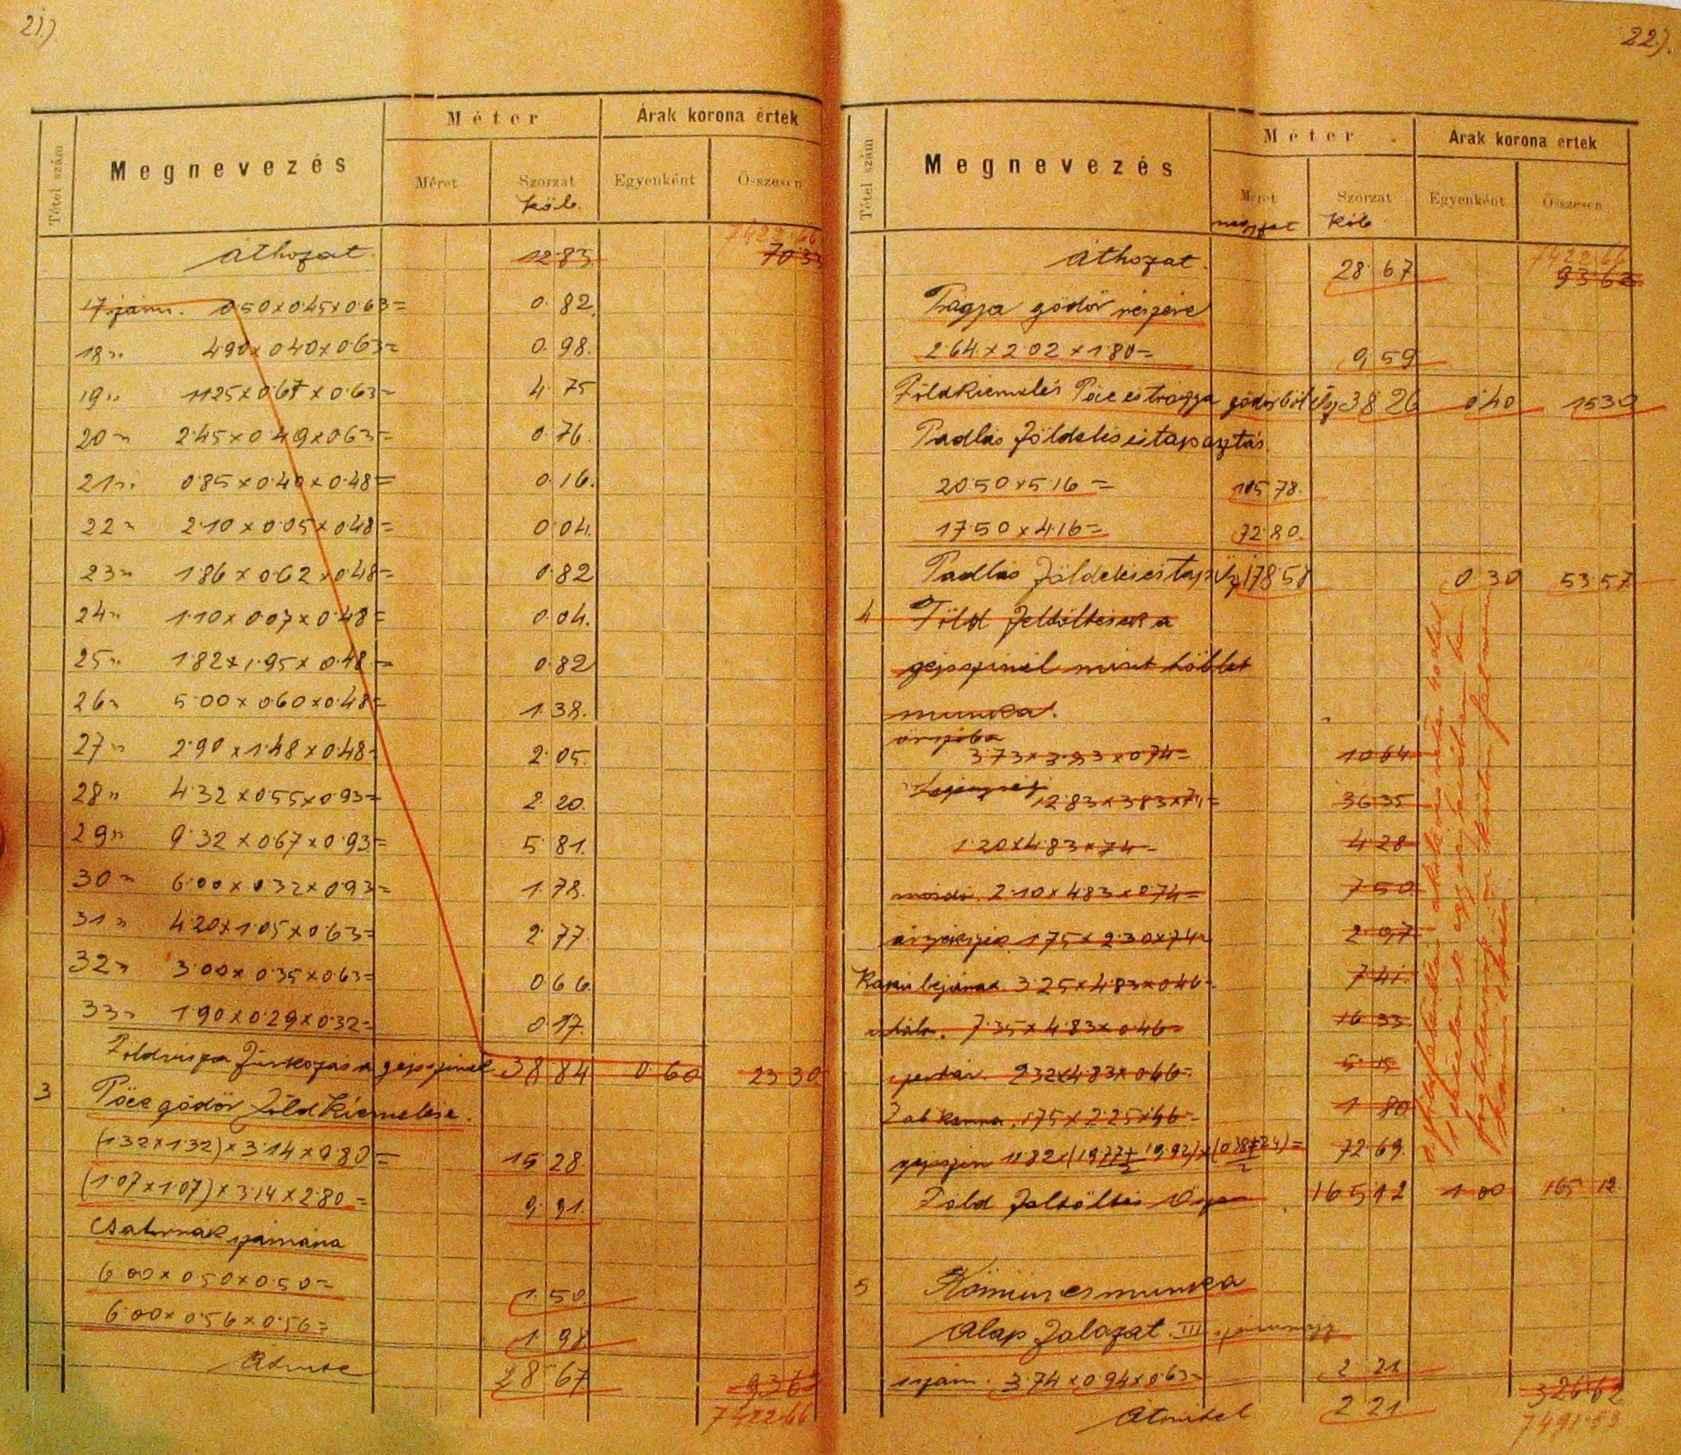 21.)
Tétel szám
Megnevezés
Méter
Méret
Szorzat
Köb.
Árak korona érték
Egyenként
Összesen
7422 66
Áthozat 12 83 70 33
17 szám. 0·50×0·45×0·63= 0. 82
18 „ 4·90×0·40×0·63= 0. 98.
19 „ 11·25×0·67×0·63= 4. 75
20 „ 2·45×0·49×0·63= 0. 76.
21 „ 0·85×0·40×0·48= 0. 16.
22 „ 2·10×0·05×0·48= 0 04.
23 „ 1·86×0·62×0·48= 0.82
24 „ 1·10×0·07×0·48= 0. 04.
25 „ 1·82×1·95×0·48= 0.82
26 „ 5·00×0·60×0·48= 1. 38.
27 „ 2·90×1·48×0·48= 2. 05.
28 „ 4·32×0·55×0·93= 2. 20.
29 „ 9·32×0·67×0·93= 5 81.
30 „ 6·00×0·32×0·93= 1. 78.
31 „ 4·20×1·05×0·63= 2. 77.
32 „ 3·00×0·35×0·63= 0 66.
33 „ 1·90×0·29×0·32= 0. 17.
38 84 0 60 23 30
3 Pöce gödör föld kiemelése.
(1·32×1·32)×3·14×2·80= 15 28.
(1·07×1·07)×3·14×2·80= 9. 91.
Csatornak számára
6·00×0·50×0·50= 1. 50.
6·00×0·56×0·56= 1. 98
Átvitel 28 67 93 63
7422 66
22.)
Tétel szám
Megnevezés
Méter
Méret
Szorzat
Köb
Árak korona érték
Egyenként
Összesen
7422 66
Áthozat. 28 67. 93 63
Trágya gödör részére
2·64×2·02×1·80= 9 59
Földkiemelés Pöce és trágya gödörből 38 26 0 40 15 30
Padlás földelés és tapasztás
20·50×5·16= 105 78.
17·50×4·16= 72 80.
Padlás földelés és 178 58 0 30 53 57
4 Föld feltöltések a
mint többlet
munka.
őrszoba
3·73×3·93×0·74= 10 64
12·83×3·83×74= 36 35
1·20×4·83×74= 4 28
mosdó 2·10×4·83×0·74= 7 50
1·75×2·30×74= 2 97
Kapu bejárat 3·25×4·83×0·46= 7 41.
7·35×4·83×0·46= 16 33
2·32×4·83×0·46= 5 15
Zab kamra. 1·75×2·25×46= 1 80
72 69.
Föld feltöltés 165 12 1 00 165 12
5 Kőműves munka
Alap falazat. III
1 szám. 3·74×0·94×0·63= 2 21
326 62
Átvitel 2 21
7491 53